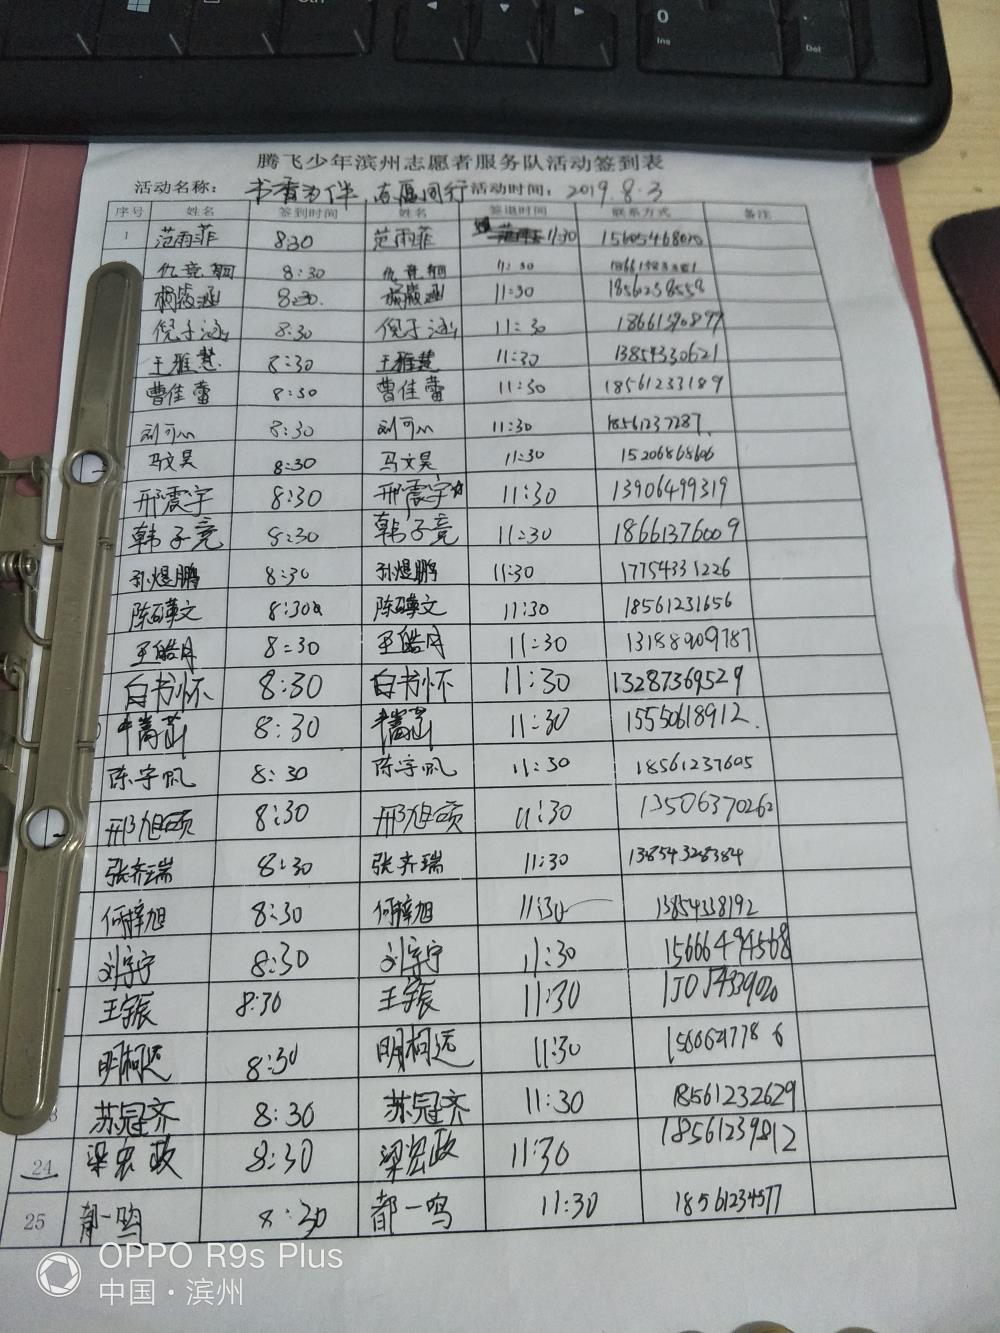 Ins
Del
腾飞少年滨州志愿者服务队活动签到表
活动名称: 书香为伴 志愿同行 活动时间: 2019.8.3
序号 姓名 签到时间 姓名 签退时间 联系方式 备注
1 范雨菲 8:30 范雨菲 11:30
8:30 11:30
杨筱涵 8:30. 杨筱涵 11:30 18561258558
倪子涵 8:30 倪子涵 11:30 18661590877
王雅慧 8:30 王雅慧 11:30 13854330621
曹佳蕾 8:30 曹佳蕾 11:30 18561233189
刘可心 8:30 刘可心 11:30 18561237287.
马文昊 8:30 马文昊 11:30 15206865606
邢震宇 8:30 邢震宇 11:30 13906499319
韩子竞 8:30 韩子竞 11:30 18661376009
孙煜鹏 8:30 孙煜鹏 11:30 17754331226
陈文 8:30 陈文 11:30 18561231656
王皓月 8:30 王皓月 11:30 13188909787
白书怀 8:30 白书怀 11:30 13287369529
8:30 11:30 15550618912.
陈宇帆 8:30 陈宇帆 11:30 18561237605
邢旭硕 8:30 邢旭硕 11:30 13506370262
张齐瑞 8:30 张齐瑞 11:30 13854328384
何梓旭 8:30 何梓旭 11:30 13854338192
刘宇宁 8:30 刘宇宁 11:30 15666494568
王宇辰 8:30 王宇辰 11:30
明柯远 8:30 明柯远 11:30
苏冠齐 8:30 苏冠齐 11:30 18561232629
24 梁宏政 8:30 梁宏政 11:30 18561239812
25 都一鸣 8:30 都一鸣 11:30 18561234577
OPPO R9s Plus
中国·滨州